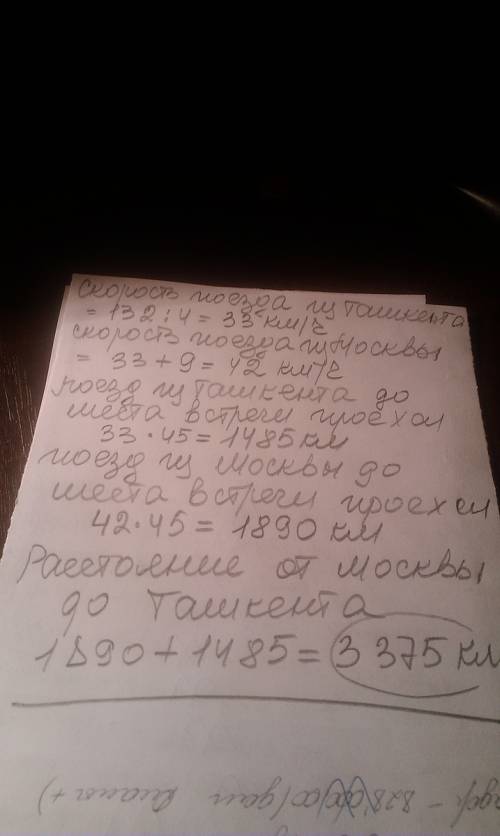 Скорость поезда из Ташкента
= 132 : 4 = 33 км/ч
скорость поезда из Москвы
= 33 + 9 = 42 км/ч
поезд из Ташкента до
места встречи проехал
33 · 45 = 1485 км
поезд из Москвы до
места встречи проехал
42 · 45 = 1890 км
Расстояние от Москвы
до Ташкента
1890 + 1485 = 3 375 км